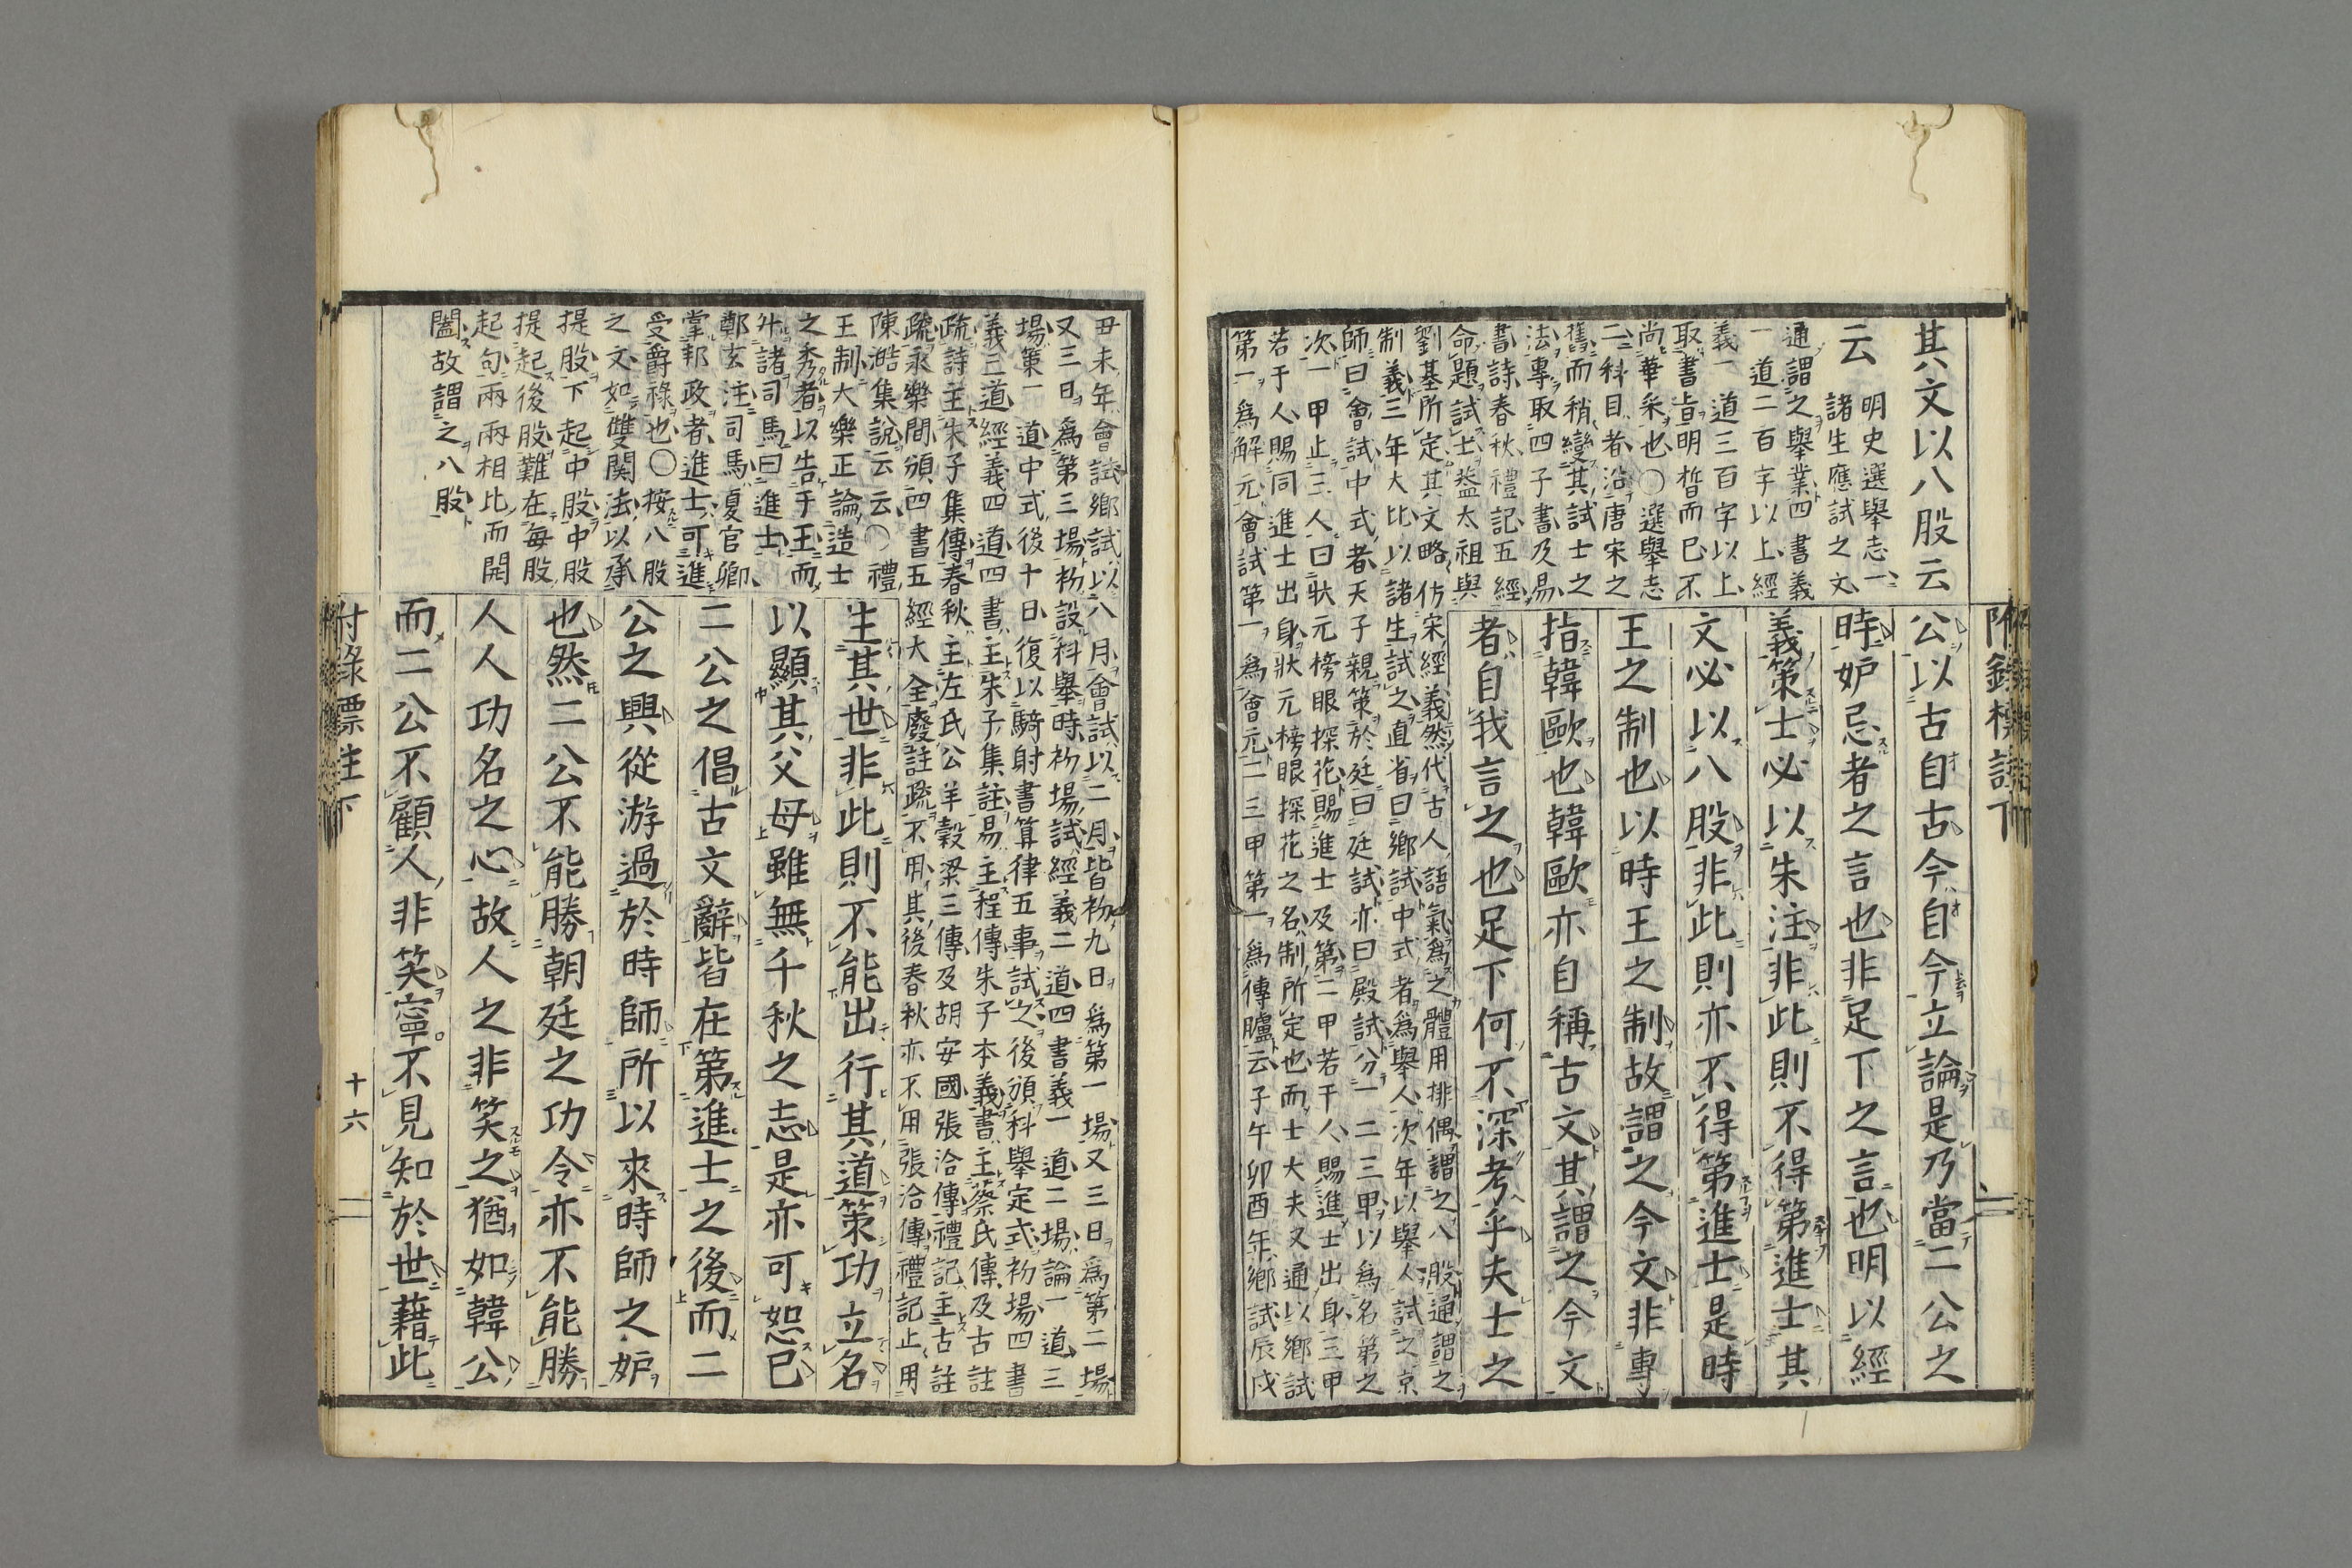 附錄標註下
其文以八股云
云
明史選舉志一
諸生應試之文
通謂之舉業四書義
一道二百字以上經
義一道三百字以上
取書旨明晳而已不
尚華采也〇選舉志
二科目者沿唐宋之
舊而稍變其試士之
法專取四子書及易
書詩春秋禮記五經
命題試士蓋太祖與
劉基所定其文略仿宋經義然代古人語氣爲之體用排偶謂之八股通謂之
制義三年大比以諸生試之直省曰鄉試中式者爲舉人次年以舉人試之京
師曰會試中式者天子親策於廷曰廷試亦曰殿試分一二三甲以爲名第之
次一甲止三人曰狀元榜眼探花賜進士及第二甲若干人賜進士出身三甲
若干人賜同進士出身狀元榜眼探花之名制所定也而士大夫又通以鄉試
第一爲解元會試第一爲會元二三甲第一爲傳臚云子午卯酉年鄉試辰戌
公以古自古今自今立論是乃當二公之
時妒忌者之言也非足下之言也明以經
義策士必以朱注非此則不得第進士其
文必以八股非此則亦不得第進士是時
王之制也以時王之制故謂之今文非專
指韓歐也韓歐亦自稱古文其謂之今文
者自我言之也足下何不深考乎夫士之
丑未年會試鄉試以八月會試以二月皆初九日爲第一場又三日爲第二場
又三日爲第三場初設科舉時初場試經義二道四書義一道二場論一道三
場策一道中式後十日復以騎射書算律五事試之後頒科舉定式初場四書
義三道經義四道四書主朱子集註易主程傳朱子本義書主蔡氏傳及古註
疏詩主朱子集傳春秋主左氏公羊穀梁三傳及胡安國張洽傳禮記主古註
疏永樂間頒四書五經大全廢註疏不用其後春秋亦不用張洽傳禮記止用
陳澔集說云云〇禮
王制大樂正論造士
之秀者以告于王而
升諸司馬曰進士
鄭玄注司馬夏官卿
掌邦政者進士可進
受爵祿也〇按八股
之文如雙関法以承
提股下起中股中股
提起後股難在每股
起句兩兩相比而開
闔故謂之八股
生其世非此則不能出行其道策功立名
以顯其父母雖無千秋之志是亦可恕已
二公之倡古文辭皆在第進士之後而二
公之興從游過於時師所以來時師之妒
也然二公不能勝朝廷之功令亦不能勝
人人功名之心故人之非笑之猶如韓公
而二公不顧人非笑寧不見知於世藉此
付錄票注下
十六